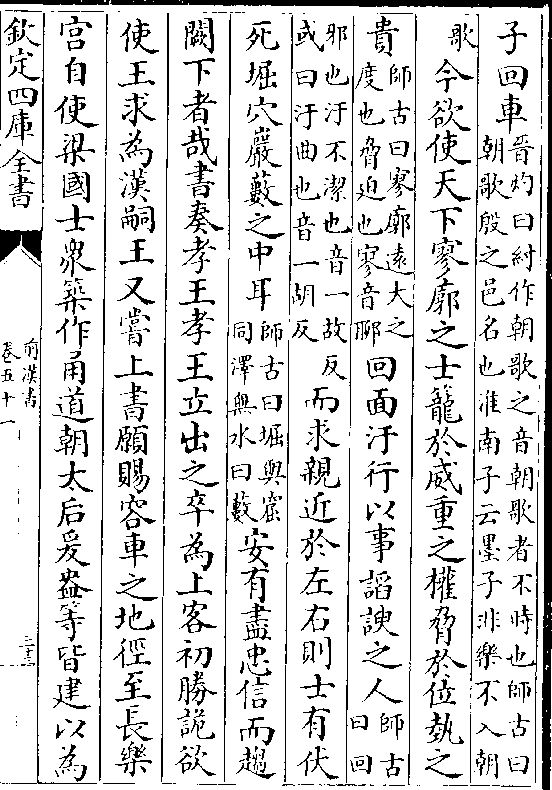 子回車晋灼曰紂作朝歌之音朝歌者不時也師古曰
朝歌殷之邑名也淮南子云墨子非樂不入朝
歌今欲使天下寥廓之士籠於威重之權脅於位埶之
貴師古曰寥廓遠大之
度也脅迫也寥音聊回面汙行以事謟諛之人師古
曰回
邪也汙不潔也音一故反
或曰汙曲也音一胡反而求親近於左右則士有伏
死堀穴巖藪之中耳師古曰堀與窟
同澤無水曰藪安有盡忠信而趨
闕下者哉書奏孝王孝王立出之卒為上客初勝詭欲
使王求為漢嗣王又嘗上書願賜容車之地徑至長樂
宫自使梁國士衆築作甬道朝太后爰盎等皆建以為
欽定四庫全書
前漢書
卷五十一
二十三